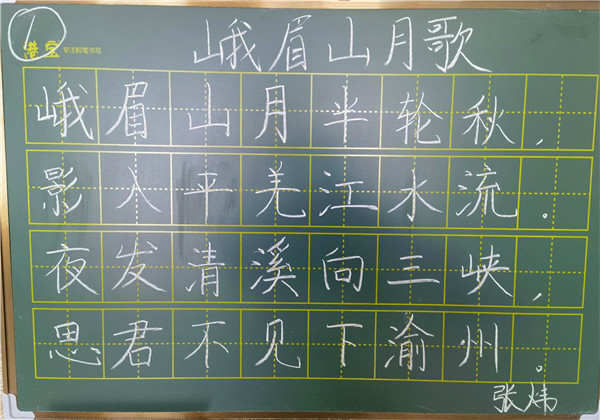 1
港宝 专注粉笔书写
峨眉山月歌
峨眉山月半轮秋，
影入平羌江水流。
夜发清溪向三峡，
思君不见下渝州。
张炜